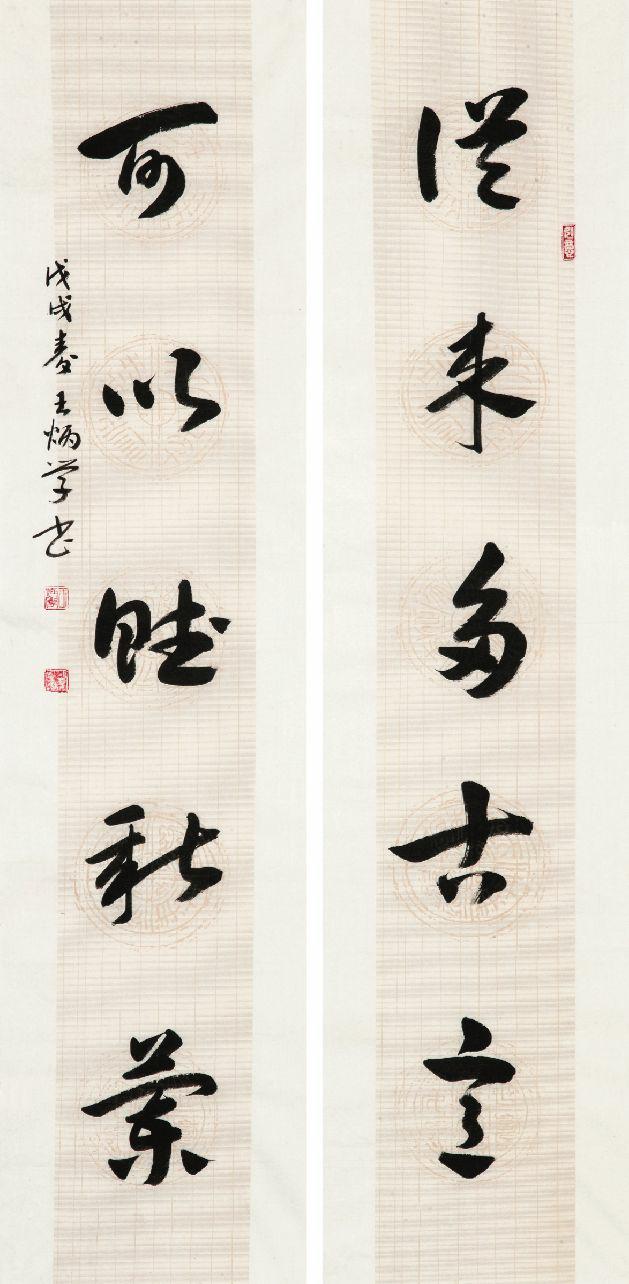 從來多古意
可以賦新蘭
戊戌春王炳学书